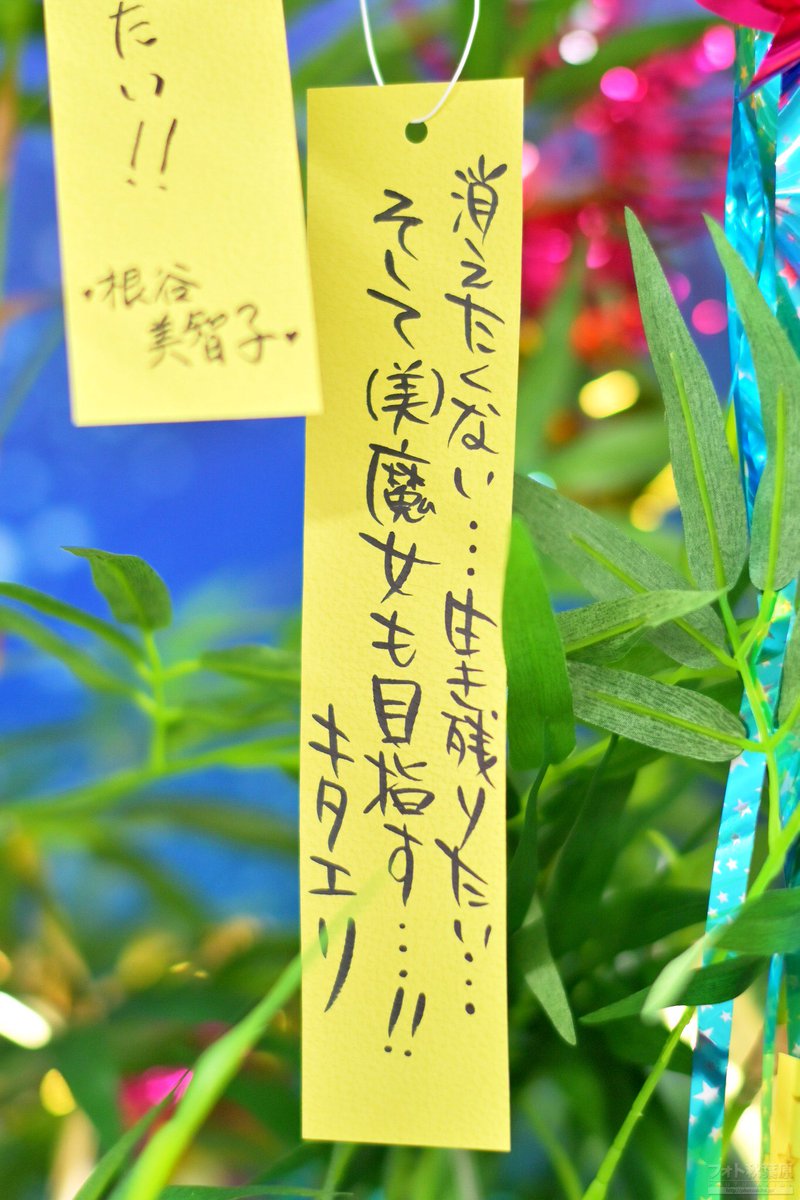 たい!!
・根谷
美智子♥
消えたくない…生き残りたい…
そして(美)魔女も目指す…!!
キタエリ
フォト秋葉原